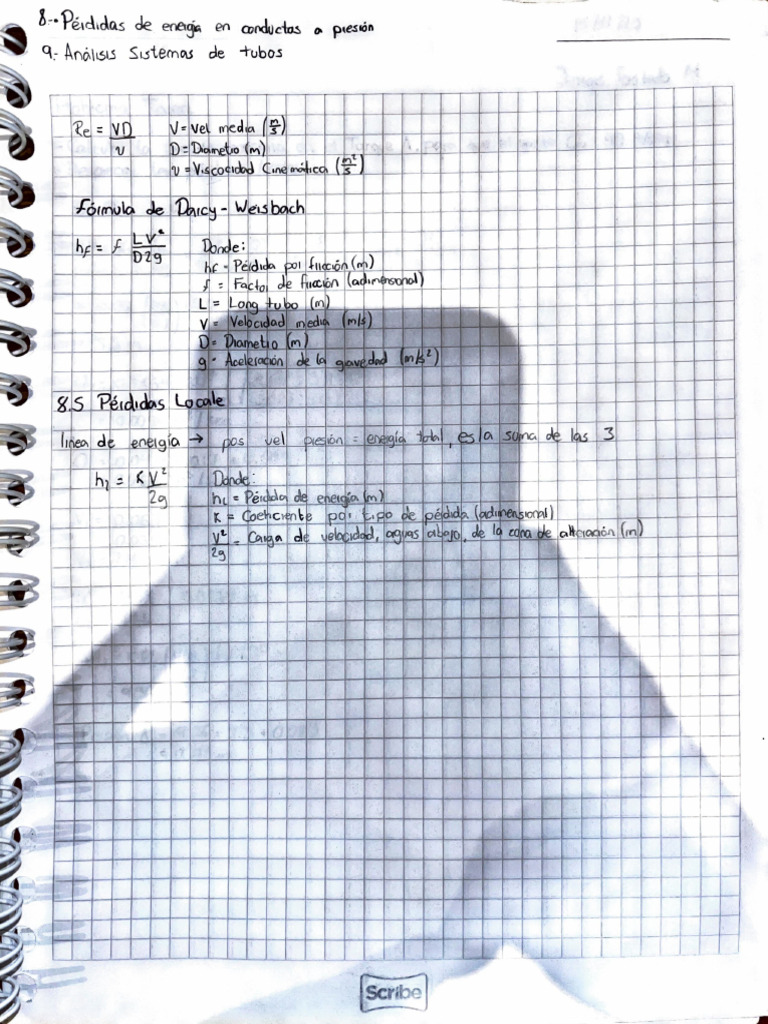 8.- Pérdidas de energía en conductas a presión
9.- Análisis Sistemas de tubos
Re = VD/ν V = Vel media (m/s)
D = Diametro (m)
ν = Viscocidad Cinemática (m²/s)
Fórmula de Darcy - Weisbach
hf = f LV²/D2g Donde:
hf - Pérdida por fricción (m)
f = Factor de fricción (adimensional)
L = Long tubo (m)
V = Velocidad media (m/s)
D = Diametro (m)
g - Aceleración de la gravedad (m/s²)
8.5 Pérdidas Locale
linea de energía → pos vel presión = energía total, es la suma de las 3
hL = K V²/2g Donde:
hL = Pérdida de energía (m)
K = Coeficiente por tipo de pérdida (adimensional)
V²/2g = Carga de velocidad, aguas abajo, de la zona de alteración (m)
Scribe